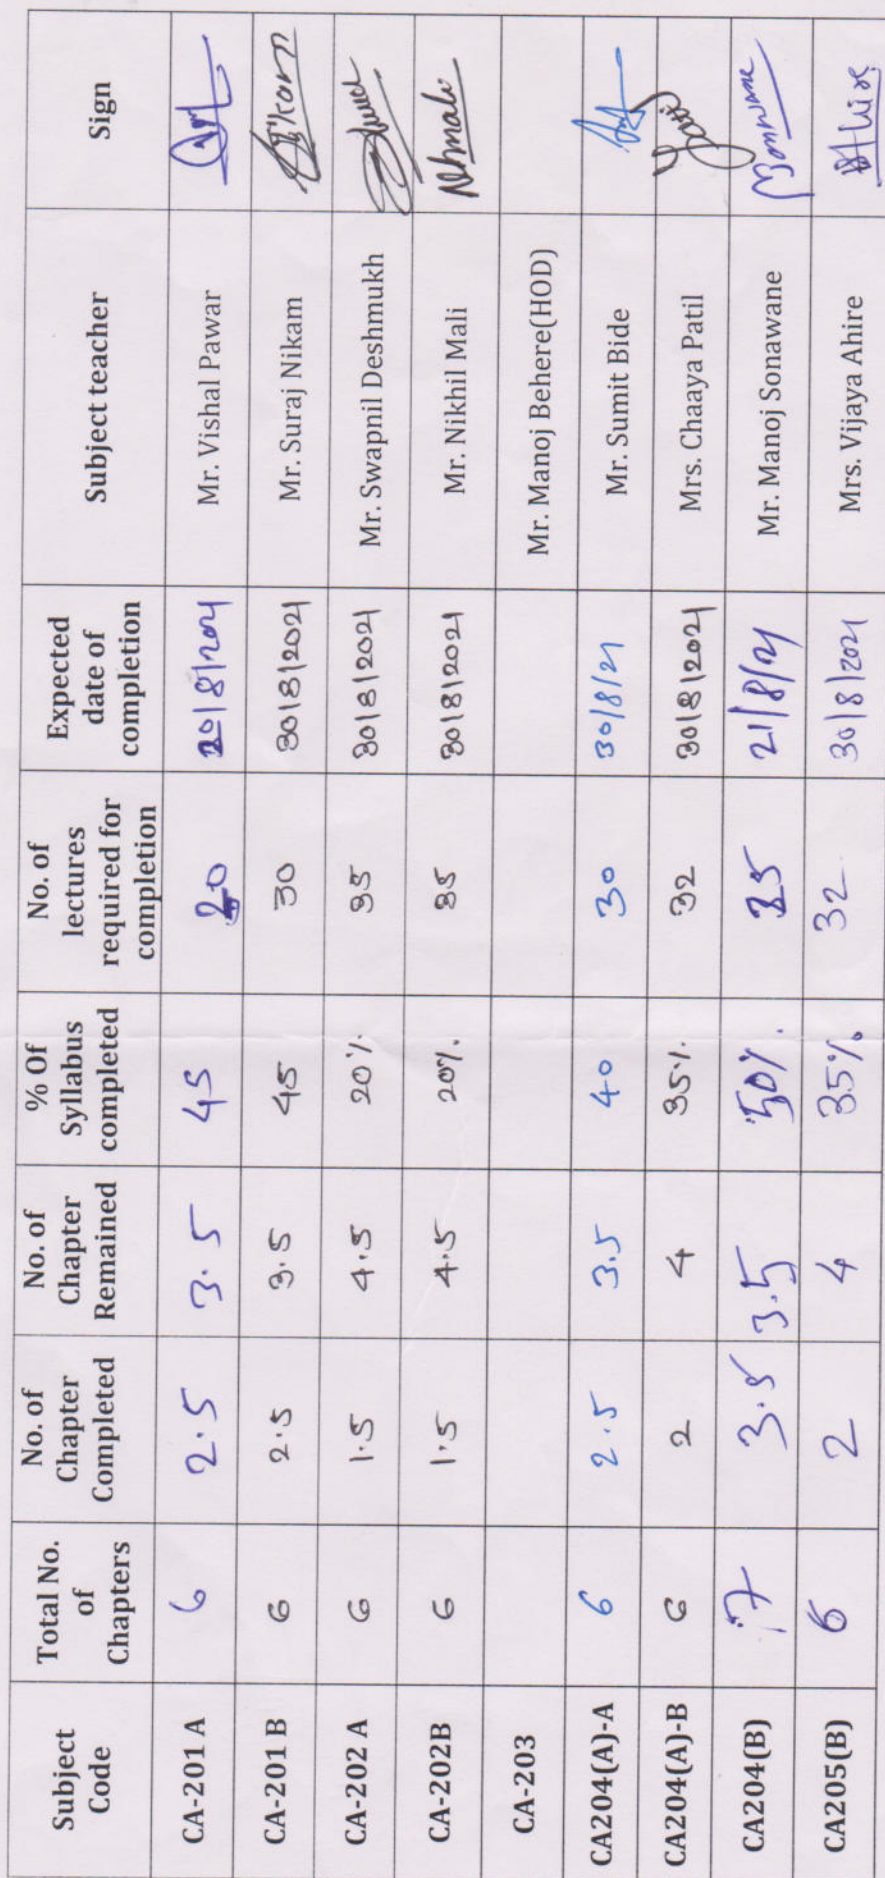 Subject Code | Total No. of Chapters | No. of Chapter Completed | No. of Chapter Remained | % Of Syllabus completed | No. of lectures required for completion | Expected date of completion | Subject teacher | Sign
CA-201 A | 6 | 2.5 | 3.5 | 45 | 20 | 20/8/2021 | Mr. Vishal Pawar
CA-201 B | 6 | 2.5 | 3.5 | 45 | 30 | 30/8/2021 | Mr. Suraj Nikam
CA-202 A | 6 | 1.5 | 4.5 | 20% | 35 | 30/8/2021 | Mr. Swapnil Deshmukh
CA-202B | 6 | 1.5 | 4.5 | 20%. | 35 | 30/8/2021 | Mr. Nikhil Mali | NHmali
CA-203 | Mr. Manoj Behere(HOD)
CA204(A)-A | 6 | 2.5 | 3.5 | 40 | 30 | 30/8/21 | Mr. Sumit Bide
CA204(A)-B | 6 | 2 | 4 | 35%. | 32 | 30/8/2021 | Mrs. Chaaya Patil
CA204(B) | 7 | 3.5 | 3.5 | 50%. | 25 | 21/8/21 | Mr. Manoj Sonawane
CA205(B) | 6 | 2 | 4 | 35% | 32 | 30/8/2021 | Mrs. Vijaya Ahire